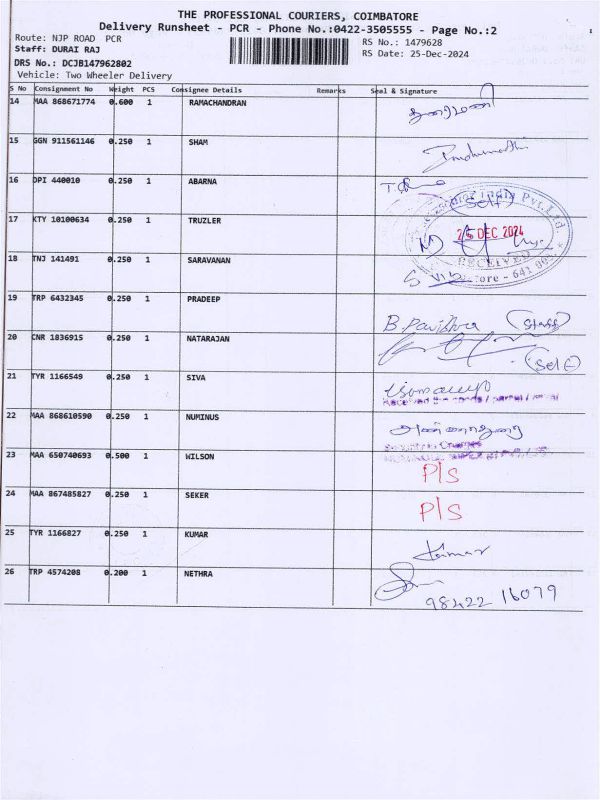 THE PROFESSIONAL COURIERS, COIMBATORE
Delivery Runsheet - PCR - Phone No.:0422-3505555 - Page No.:2
Route: NJP ROAD PCR
RS No.: 1479628
Staff: DURAI RAJ
RS Date: 25-Dec-2024
DRS No.: DCJB147962802
Vehicle: Two Wheeler Delivery
S No Consignment No Weight PCS Consignee Details Remarks Seal & Signature
14 MAA 868671774 0.600 1 RAMACHANDRAN
15 GGN 911561146 0.250 1 SHAM Indhumathi
16 DPI 440010 0.250 1 ABARNA (Self)
17 KTY 10100634 0.250 1 TRUZLER 26 DEC 2024
RECEIVED
18 TNJ 141491 0.250 1 SARAVANAN
19 TRP 6432345 0.250 1 PRADEEP B. Pavithra (Staff)
20 CNR 1836915 0.250 1 NATARAJAN (Self)
21 TYR 1166549 0.250 1 SIVA
22 MAA 868610590 0.250 1 NUMINUS
23 MAA 650740693 0.500 1 WILSON P/S
24 MAA 867485827 0.250 1 SEKER P/S
25 TYR 1166827 0.250 1 KUMAR Kumar
26 TRP 4574208 0.200 1 NETHRA
98422 16079